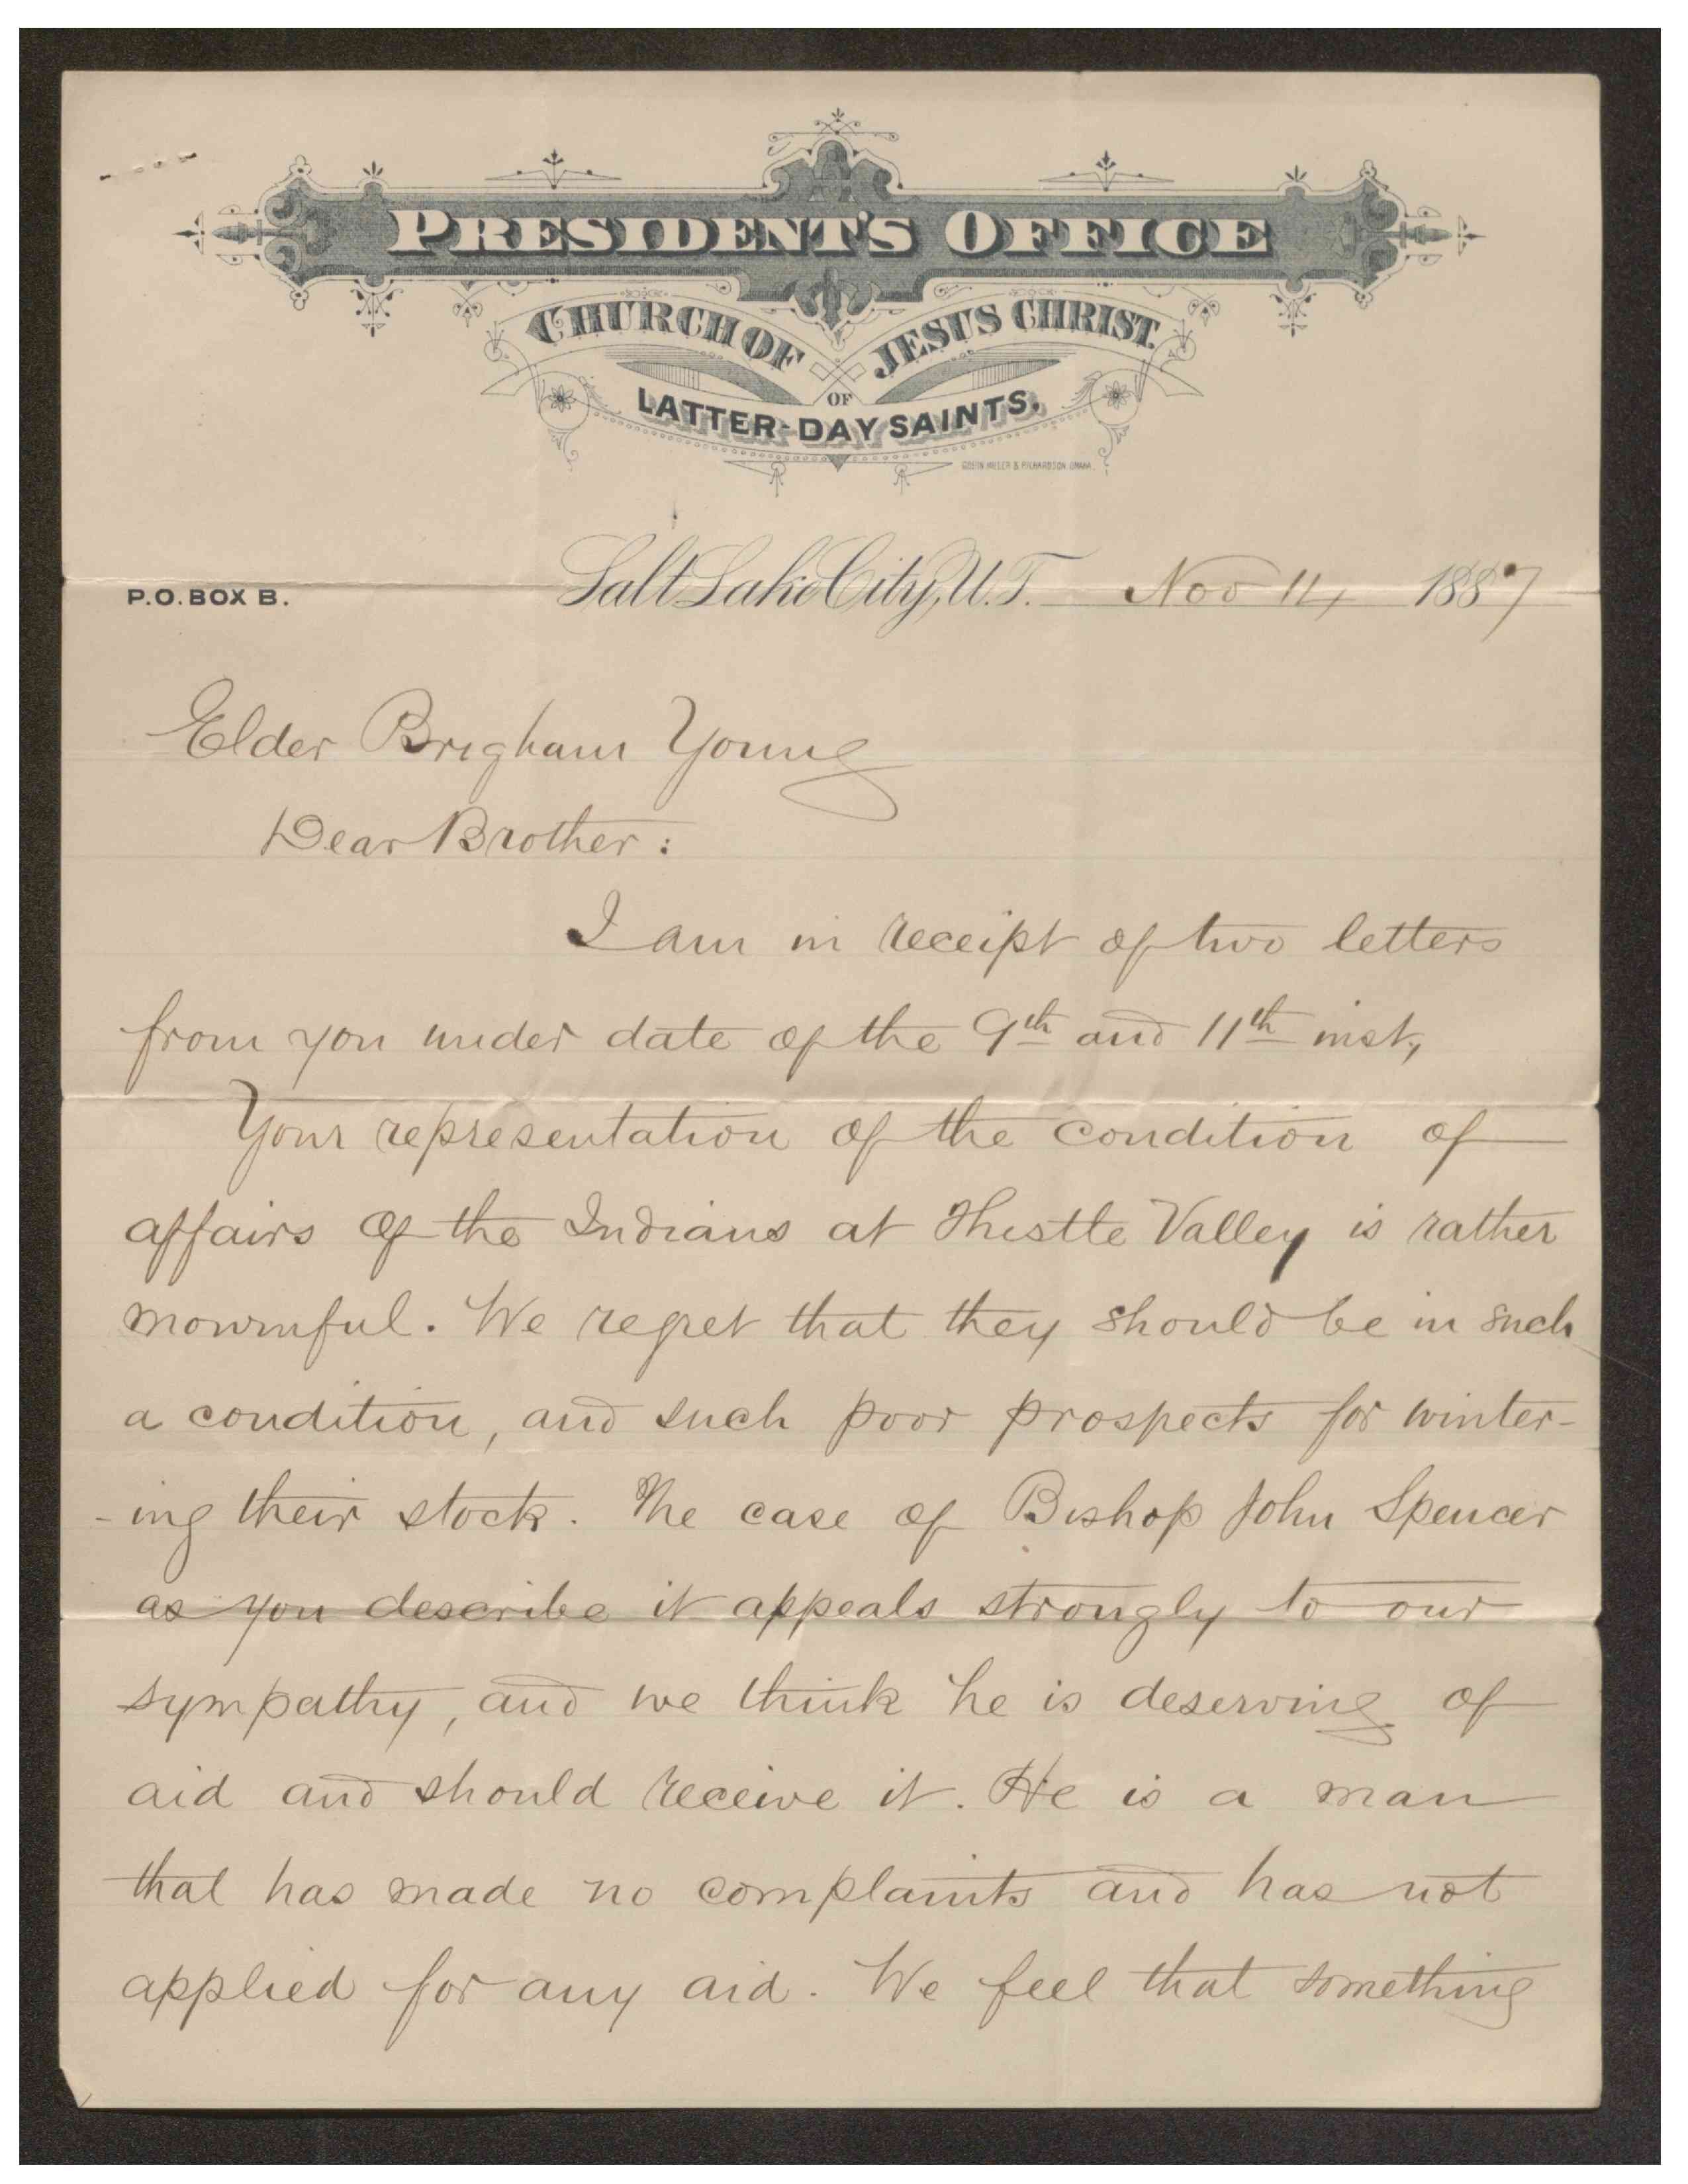 PRESIDENT'S OFFICE
CHURCH OF JESUS CHRIST
OF
LATTER-DAY SAINTS.
P.O. BOX B.
Salt Lake City, U.T. Nov 14, 1887
Elder Brigham Young
Dear Brother:
I am in receipt of two letters
from you under date of the 9th and 11th inst,
Your representation of the condition of
affairs of the Indians at Thistle Valley is rather
mournful. We regret that they should be in such
a condition, and such poor prospects for winter-
-ing their stock. The case of Bishop John Spencer
as you describe it appeals strongly to our
sympathy, and we think he is deserving of
aid and should receive it. He is a man
that has made no complaints and has not
applied for any aid. We feel that something